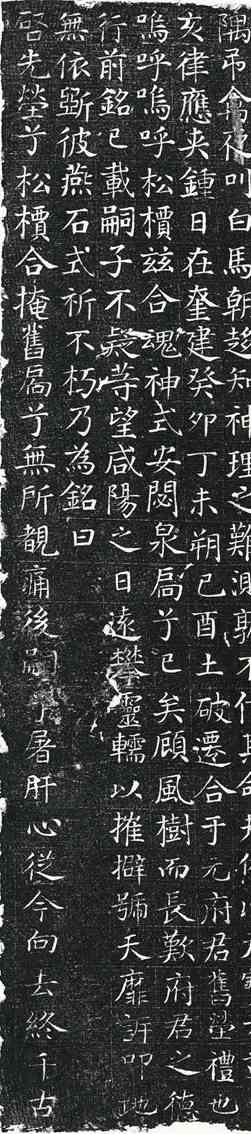 隅吊會叫白馬朝趍知神理之難測期不
亥律應夾鍾日在奎建癸卯丁未朔己酉土破遷合于元府君舊塋禮也
嗚呼嗚呼松檟兹合魂神式安閟泉扃兮已矣顧風樹而長歎府君之德
行前銘已載嗣子不疑等望咸陽之日遠攀靈轜以摧擗號天靡訴叩地
無依斲彼燕石式祈不朽乃為銘曰
啓先塋兮松檟合掩舊扃兮無所覩痛後嗣兮屠肝心從今向去終千古